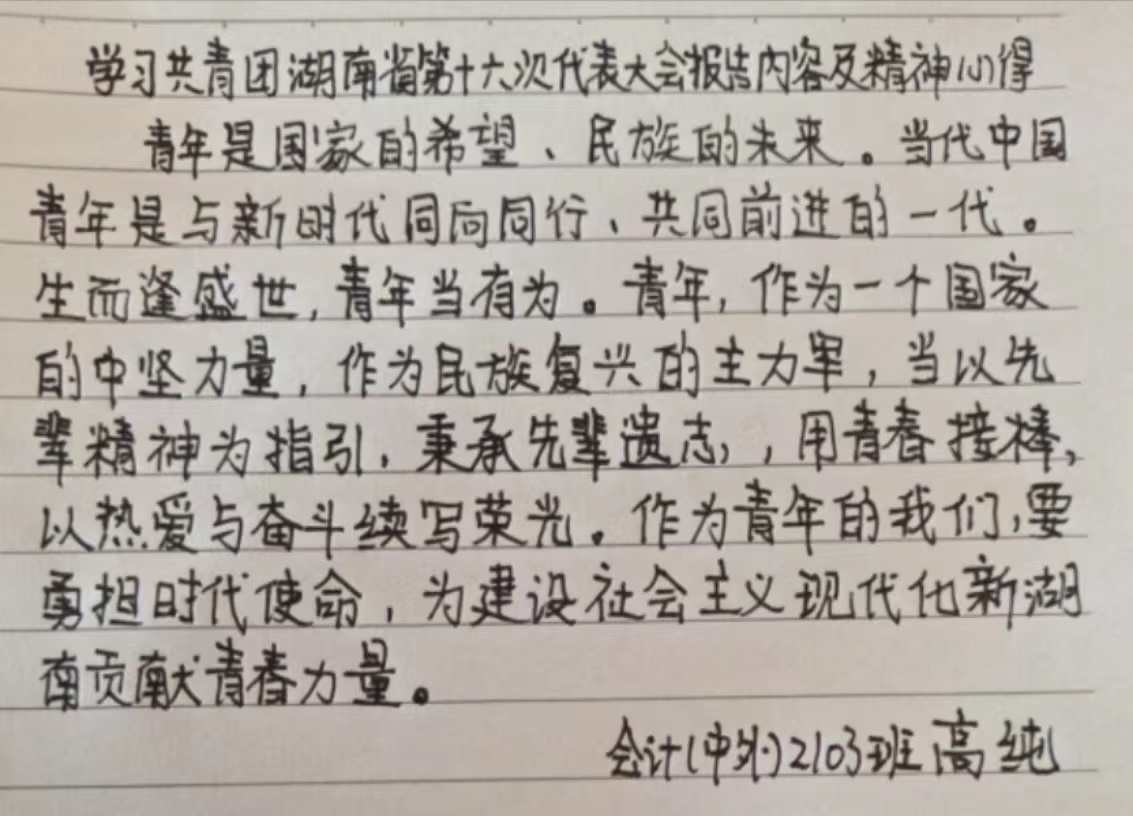 学习共青团湖南省第十六次代表大会报告内容及精神心得
青年是国家的希望、民族的未来。当代中国
青年是与新时代同向同行、共同前进的一代。
生而逢盛世,青年当有为。青年,作为一个国家
的中坚力量,作为民族复兴的主力军,当以先
辈精神为指引,秉承先辈遗志,,用青春接棒,
以热爱与奋斗续写荣光。作为青年的我们,要
勇担时代使命,为建设社会主义现代化新湖
南贡献青春力量。
会计(中外)2103班高纯